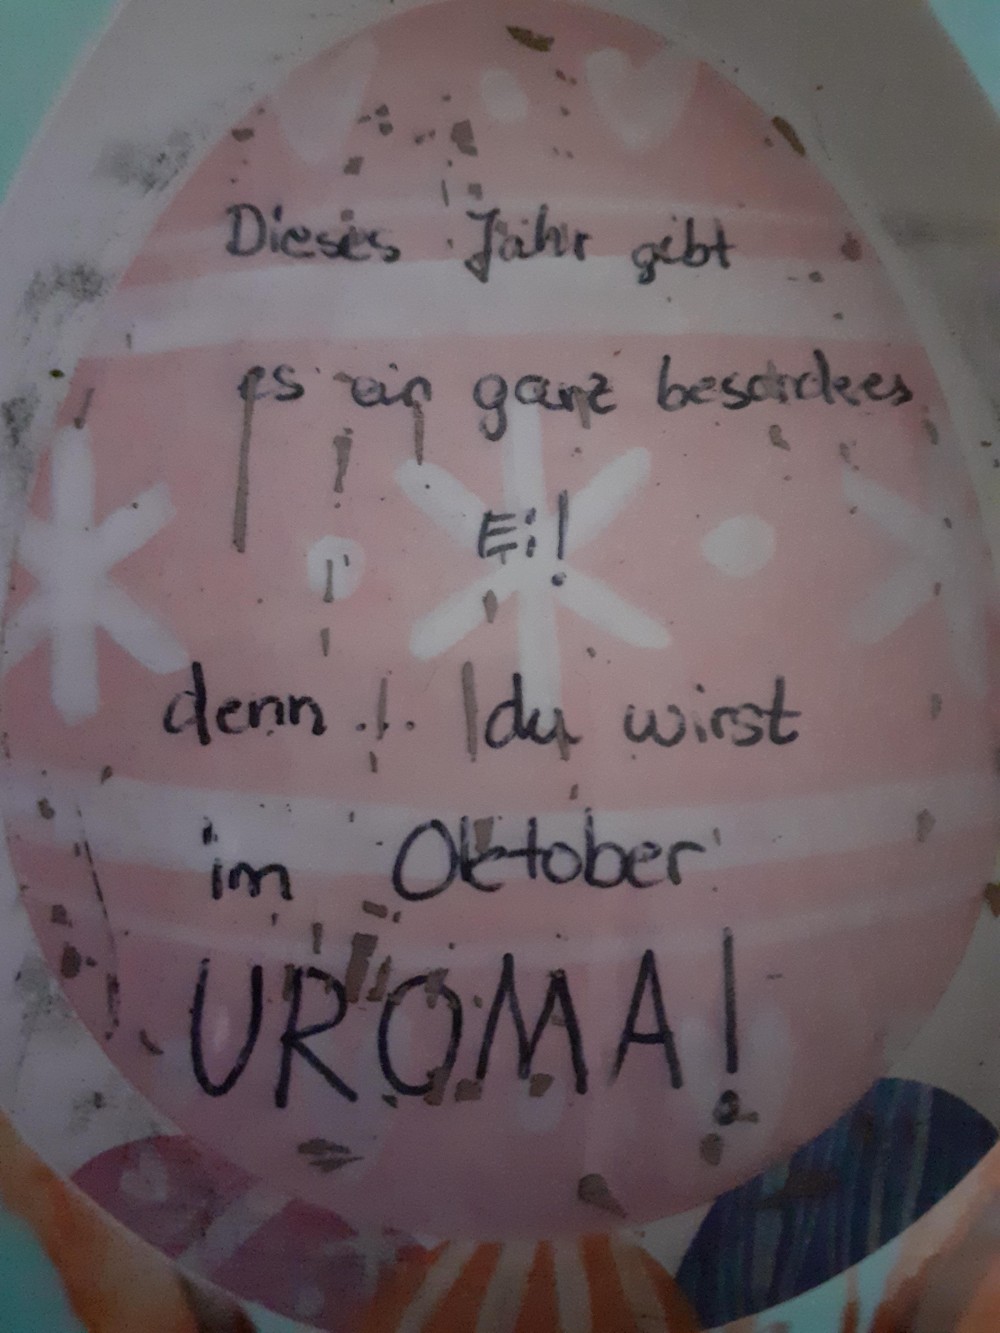 Dieses Jahr gibt
es ein ganz besonderes
Ei!
denn... du wirst
im Oktober
UROMA!